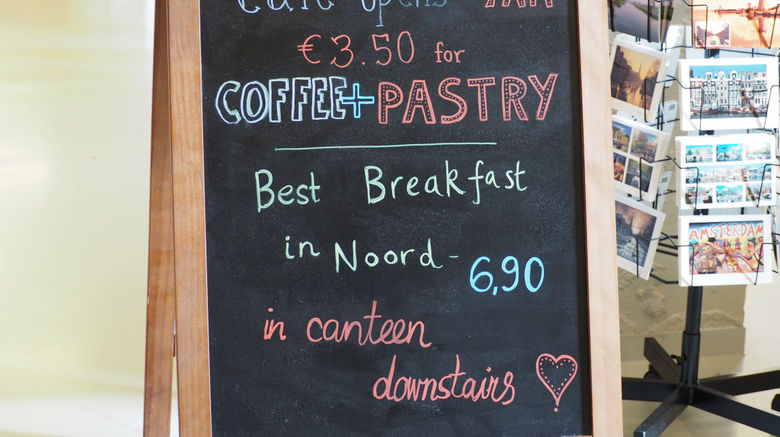 €3.50 for
COFFEE+PASTRY
Best Breakfast
in Noord - 6,90
in canteen
downstairs
AMSTERDAM